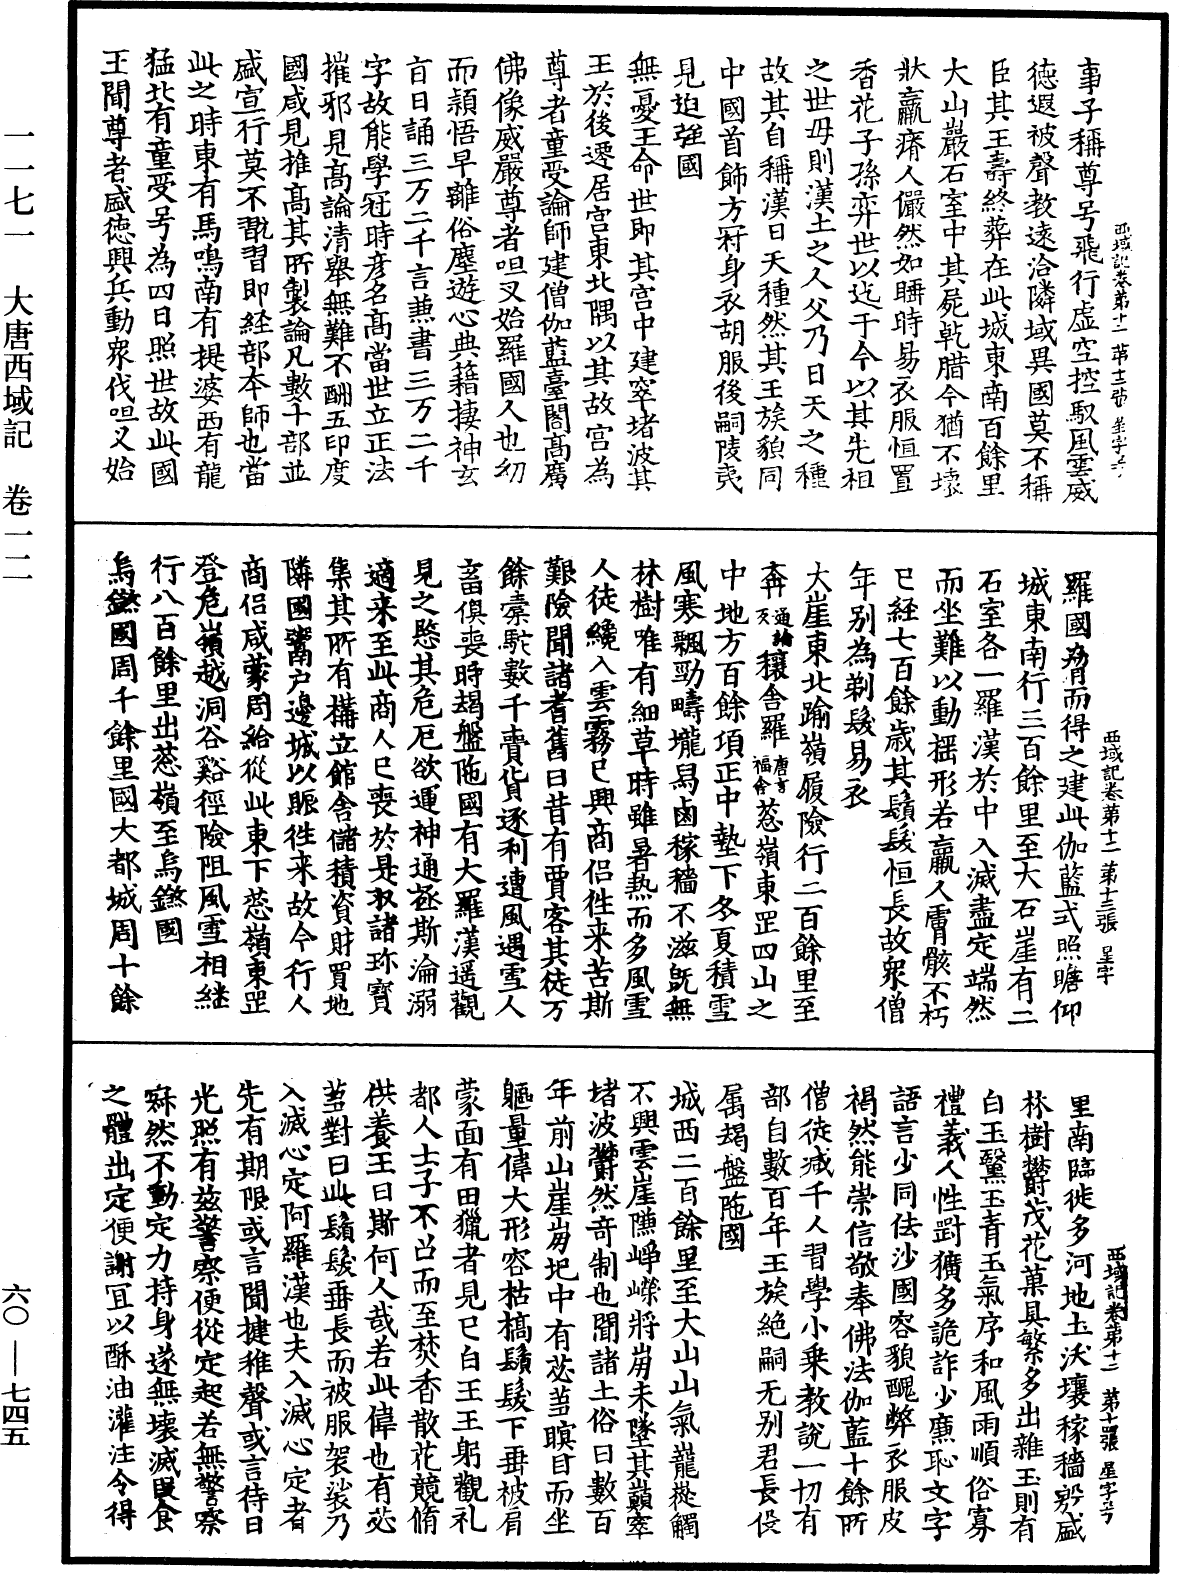 一一七一　大唐西域記　卷一二
六〇——七四五
西域記卷第十二　第十二張　星字号
事子稱尊号飛行虛空控馭風雲威
德遐被聲教遠洽隣域異國莫不稱
臣其王壽終葬在此城東南百餘里
大山巖石室中其屍乾腊今猶不壞
狀羸瘠人儼然如睡時易衣服恒置
香花子孫弈世以迄于今以其先祖
之世毋則漢土之人父乃日天之種
故其自稱漢日天種然其王族貌同
中國首飾方冠身衣胡服後嗣陵夷
見迫強國
無憂王命世即其宮中建窣堵波其
王於後遷居宮東北隅以其故宮為
尊者童受論師建僧伽藍臺閣高廣
佛像威嚴尊者呾叉始羅國人也幼
而穎悟早離俗塵遊心典籍棲神玄
旨日誦三万二千言兼書三万二千
字故能學冠時彥名高當世立正法
摧邪見高論清舉無難不酬五印度
國咸見推高其所製論凡數十部並
盛宣行莫不翫習即経部本師也當
此之時東有馬鳴南有提婆西有龍
猛北有童受号為四日照世故此國
王聞尊者盛德興兵動衆伐呾叉始
西域記卷第十二　第十三張　星字
羅國脅而得之建此伽藍式照瞻仰
城東南行三百餘里至大石崖有二
石室各一羅漢於中入滅盡定端然
而坐難以動揺形若羸人膚骸不朽
已経七百餘歲其鬚髮恒長故衆僧
年別為剃髮易衣
大崖東北踰嶺履險行二百餘里至
奔逋論反穰舍羅唐言福舍葱嶺東罡四山之
中地方百餘頃正中墊下冬夏積雪
風寒飄勁疇壠舄鹵稼穡不滋旣無
林樹唯有細草時雖暑熱而多風雪
人徒纔入雲霧已興商侶徃来苦斯
艱險聞諸耆舊曰昔有賈客其徒万
餘橐駝數千賷貨逐利遭風遇雪人
畜俱喪時朅盤陁國有大羅漢遥觀
見之愍其危厄欲運神通拯斯淪溺
適来至此商人已喪於是収諸珎寶
集其所有構立館舍儲積資財買地
隣國鬻户邊城以賑徃来故今行人
商侶咸蒙周給從此東下葱嶺東罡
登危嶺越洞谷谿徑險阻風雪相継
行八百餘里出葱嶺至烏鎩國
烏鎩國周千餘里國大都城周十餘
西域記卷第十二　第十四張　星字号
里南臨徙多河地土沃壤稼穡殷盛
林樹欝茂花菓具繁多出雜玉則有
白玉黳玉青玉氣序和風雨順俗寡
禮義人性剛獷多詭詐少廉恥文字
語言少同佉沙國容貌醜弊衣服皮
褐然能崇信敬奉佛法伽藍十餘所
僧徒減千人習學小乗教說一切有
部自數百年王族絶嗣无别君長伇
属朅盤陁國
城西二百餘里至大山山氣龍嵸觸
不興雲崖隒崢嶸將崩未墜其巔窣
堵波欝然奇制也聞諸土俗曰數百
年前山崖崩圮中有苾蒭瞑目而坐
軀量偉大形容枯槁鬚髮下垂被肩
蒙面有田獵者見已白王王躬觀礼
都人士子不召而至焚香散花競脩
供養王曰斯何人哉若此偉也有苾
蒭對曰此鬚髮垂長而被服袈裟乃
入滅心定阿羅漢也夫入滅心定者
先有期限或言聞揵稚聲或言待日
光照有茲警察便從定起若無警察
寂然不動定力持身遂無壞滅叚食
之體出定便謝冝以酥油灌注令得